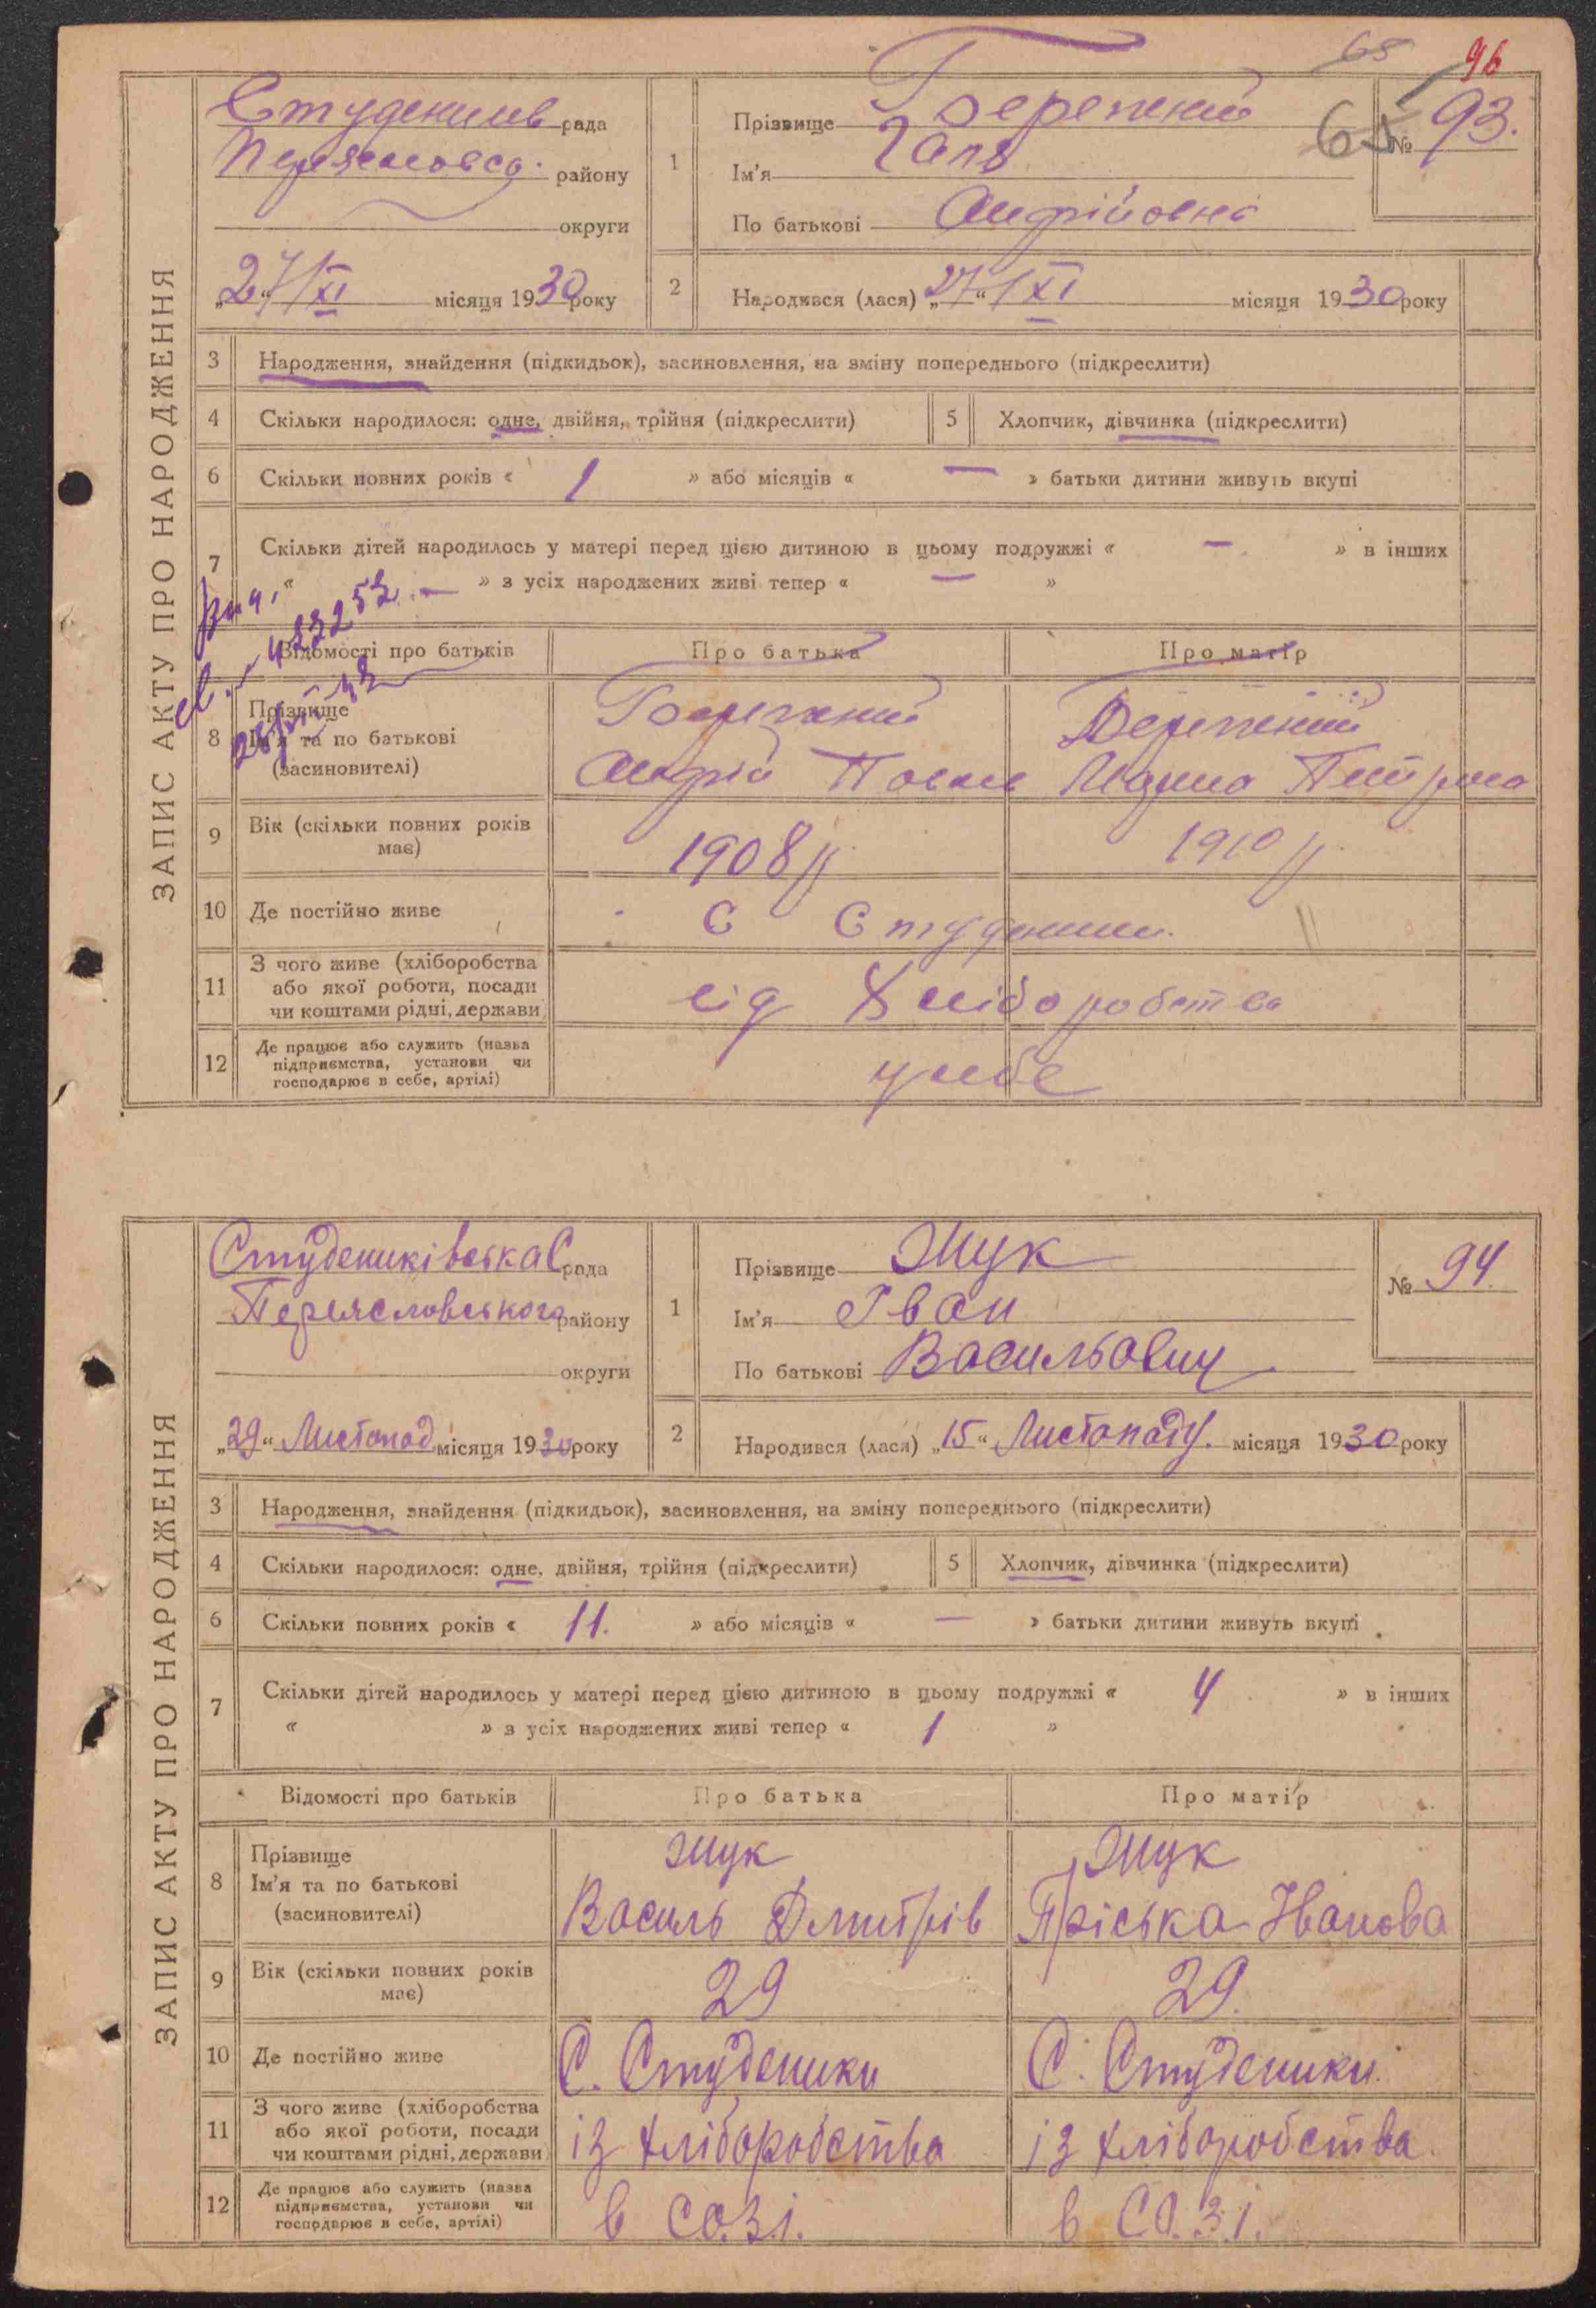 65 96
ЗАПИС АКТУ ПРО НАРОДЖЕННЯ
Студеників рада
Переясловсь. району
округи
„27“/XI місяця 1930 року
1
Прізвище Бережний
Ім'я Галя
По батькові Андрійовна
65
№ 93.
2
Народився (лася) „27“/XI місяця 1930 року
3 Народження, знайдення (підкидьок), засиновлення, на зміну попереднього (підкреслити)
4 Скільки народилося: одне, двійня, трійня (підкреслити)
5 Хлопчик, дівчинка (підкреслити)
6 Скільки повних років « 1 » або місяців « — » батьки дитини живуть вкупі
7 Скільки дітей народилось у матері перед цією дитиною в цьому подружжі « — » в інших
« — » з усіх народжених живі тепер « — »
Відомості про батьків Про батька Про матір
8 Прізвище
Ім'я та по батькові
(засиновителі)
Бережний Бережний
Андрій
9 Вік (скільки повних років має) 1908 р 1910 р.
10 Де постійно живе С Студеники.
11 З чого живе (хліборобства
або якої роботи, посади
чи коштами рідні, держави
від Хліборобства
12 Де працює або служить (назва
підприємства, установи чи
господарює в себе, артілі)
усебе
ЗАПИС АКТУ ПРО НАРОДЖЕННЯ
Студениківська С рада
Переясловського району
округи
„29“ Листопад місяця 1930 року
1
Прізвище Жук
Ім'я Іван
По батькові Васильович
№ 94
2
Народився (лася) „15“ Листопаду. місяця 1930 року
3 Народження, знайдення (підкидьок), засиновлення, на зміну попереднього (підкреслити)
4 Скільки народилося: одне, двійня, трійня (підкреслити)
5 Хлопчик, дівчинка (підкреслити)
6 Скільки повних років « 11. » або місяців « — » батьки дитини живуть вкупі
7 Скільки дітей народилось у матері перед цією дитиною в цьому подружжі « 4 » в інших
« » з усіх народжених живі тепер « 1 »
Відомості про батьків Про батька Про матір
8 Прізвище
Ім'я та по батькові
(засиновителі)
Жук Жук
Василь Дмитрів Пріська Іванова
9 Вік (скільки повних років має) 29 29.
10 Де постійно живе С. Студеники С. Студеники.
11 З чого живе (хліборобства
або якої роботи, посади
чи коштами рідні, держави
із хліборобства із хліборобства
12 Де працює або служить (назва
підприємства, установи чи
господарює в себе, артілі)
в СОЗі. в СОЗі.